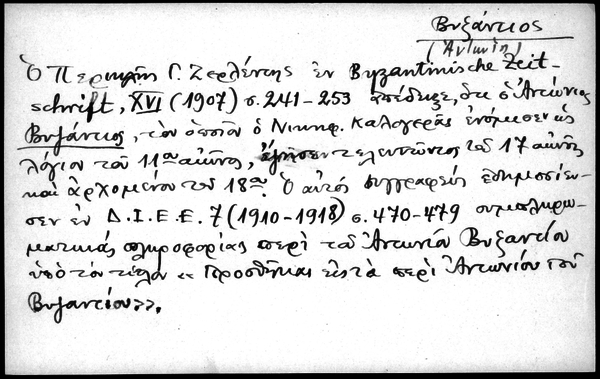 Βυζάντιος
(Ἀντών.)
Ὁ Περικλῆς Γ. Ζερλέντης ἐν Byzantinische Zeit-
schrift, XVI (1907) σ. 241-253 ἀπέδειξε, ὅτι ὁ Ἀντώνιος
Βυζάντιος, τὸν ὁποῖον ὁ Νικηφ. Καλογερᾶς ἐνόμισεν ὡς
λόγιον τοῦ 11ου αἰῶνος, ἤκμασεν τελευτῶντος τοῦ 17 αἰῶνος
καὶ ἀρχομένου τοῦ 18ου. Ὁ αὐτός συγγραφεύς ἐδημοσίευ-
σεν ἐν Δ.Ι.Ε.Ε. 7 (1910-1918) σ. 470-479 συμπληρω-
ματικάς πληροφορίας περὶ τοῦ Ἀντωνίου Βυζαντίου
ὑπὸ τὸν τίτλον «Προσθῆκαι εἰς τὰ περὶ Ἀντωνίου τοῦ
Βυζαντίου».